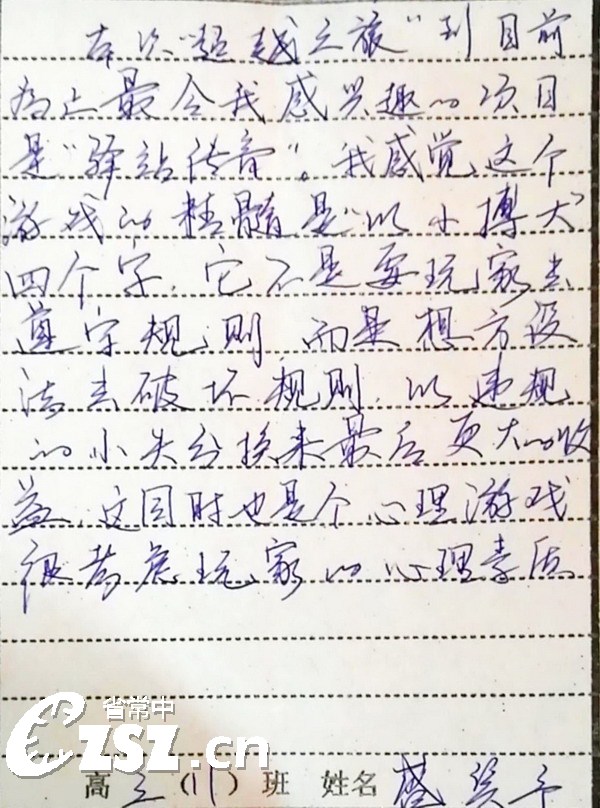 本次“超越之旅”到目前
为止最令我感兴趣的项目
是“驿站传音”。我感觉这个
游戏的精髓是“以小搏大”
四个字，它不是要玩家去
遵守规则，而是想方设
法去破坏规则，以违规
的小失分换来最后更大的收
益，这同时也是个心理游戏
很考虑玩家的心理素质
省常中
CZSZ.cn
高三（11）班 姓名